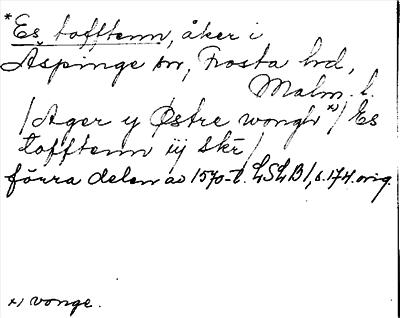 *Es tofftenn, åker i
Äspinge sn, Frosta hd,
Malm. l.
/Ager y Østre wongh x)/ Es
tofftenn iij skr/
förra delen av 1570-t. LSLB 1, s. 174. orig.
x) vonge.